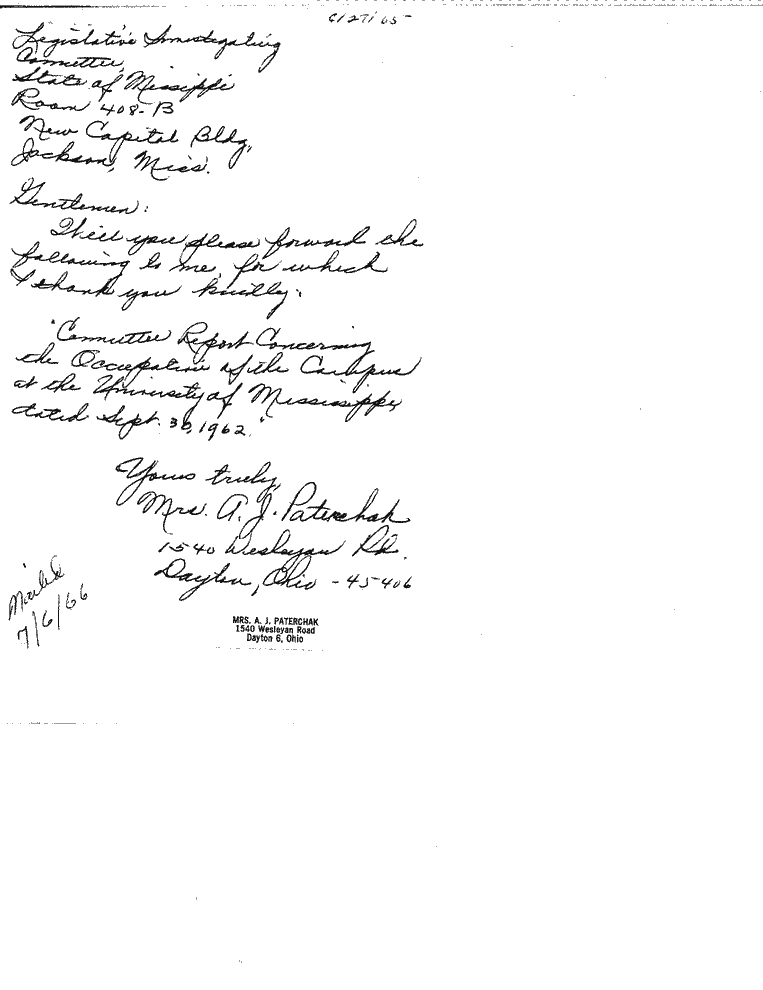 6/27/65
Legislative Investigating
Committee,
State of Missippi
Room 408-B
New Capital Bldg,
Jackson, Miss.
Gentlemen:
Will you please forward the
following to me, for which
I thank you kindly:
"Committee Report Concerning
the Occupation of the Campus
at the University of Mississippi,
dated Sept. 30, 1962."
Yours truly,
Mrs. A. J. Paterchak
1540 Wesleyan Rd.
Dayton, Ohio - 45406
Mailed
7/6/66
MRS. A. J. PATERCHAK
1540 Wesleyan Road
Dayton 6, Ohio